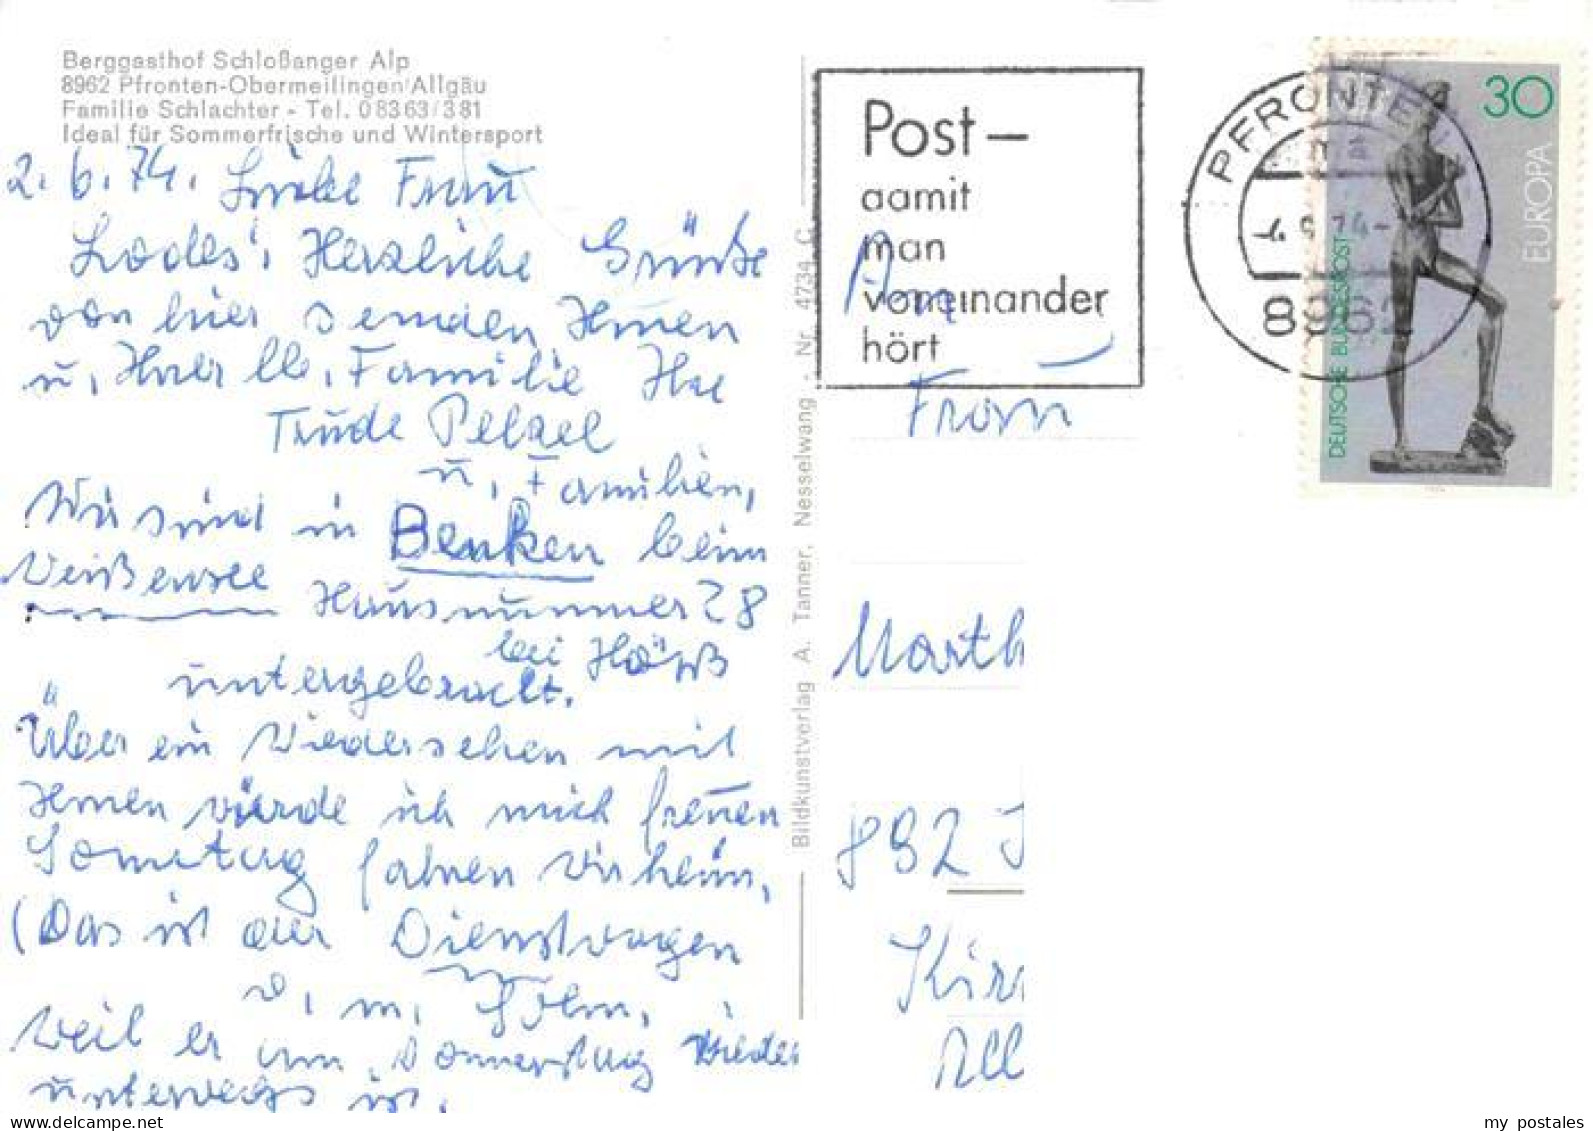 Berggasthof Schloßanger Alp
8962 Pfronten-Obermeilingen/Allgäu
Familie Schlachter - Tel. 08363/381
Ideal für Sommerfrische und Wintersport
2.6.74. Liebe Frau
Lodes! Herzliche Grüße
von hier senden Ihnen
u. Familie Ihre
Trude Pelzel
u. Familien,
Wir sind in Benken beim
Weißensee Hausnummer 28
bei Höß
untergebracht.
Über ein Wiedersehen mit
Ihnen würde ich mich freuen
Samstag fahren wir heim,
(Das ist der Dienstwagen
v. m. Sohn,
weil er am Donnerstag wieder
unterwegs ist.
Bildkunstverlag A. Tanner, Nesselwang - Nr. 4734 C
Post –
damit
man
voneinander
hört
PFRONTEN
74
8962
30
EUROPA
DEUTSCHE BUNDESPOST
An
Frau
Marth
892
Kirr
All
my postales